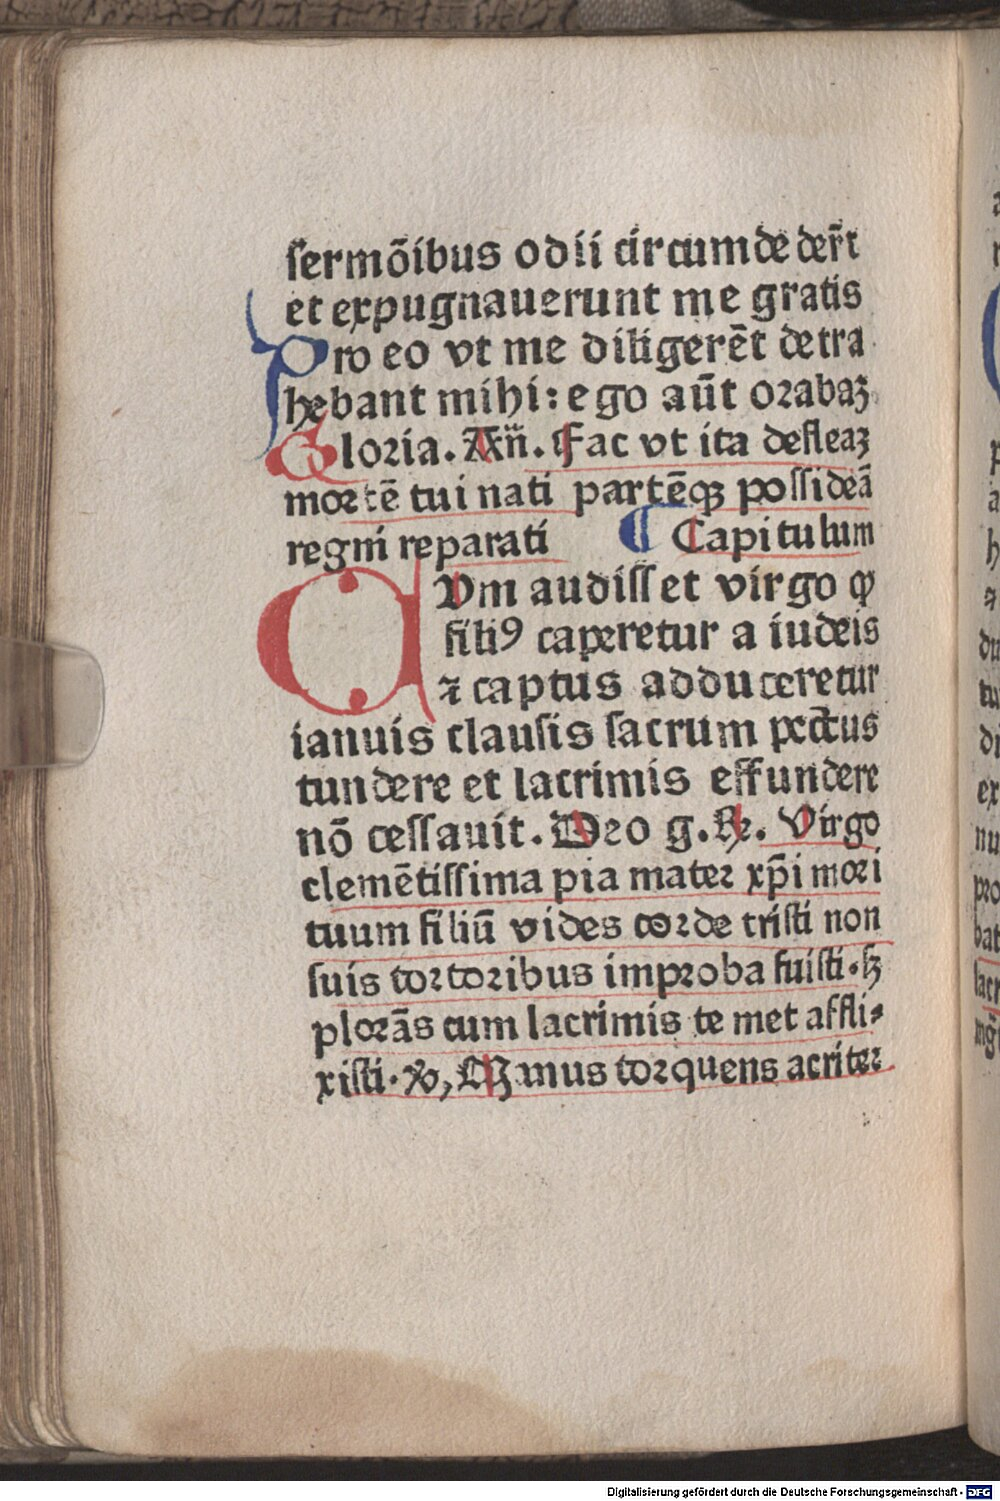 sermõibus odii circumdeder̃t
et expugnauerunt me gratis
Pro eo vt me diligerẽt detra
hebant mihi: ego aũt orabaʒ
Gloria. Añ. Fac vt ita defleaʒ
mortẽ tui nati partẽqꝫ possideã
regni reparati ¶ Capitulum
CVm audisset virgo ꝙ
filiꝰ caperetur a iudeis
⁊ captus adduceretur
ianuis clausis sacrum pectus
tundere et lacrimis effundere
nõ cessauit. Deo g. ꝶ. Virgo
clemẽtissima pia mater xp̃i mori
tuum filiũ vides corde tristi non
suis tortoribus improba fuisti. sꝫ
plorãs cum lacrimis te met affli⸗
xisti. ꝟ, Mimus torquens acriter
Digitalisierung gefördert durch die Deutsche Forschungsgemeinschaft - DFG